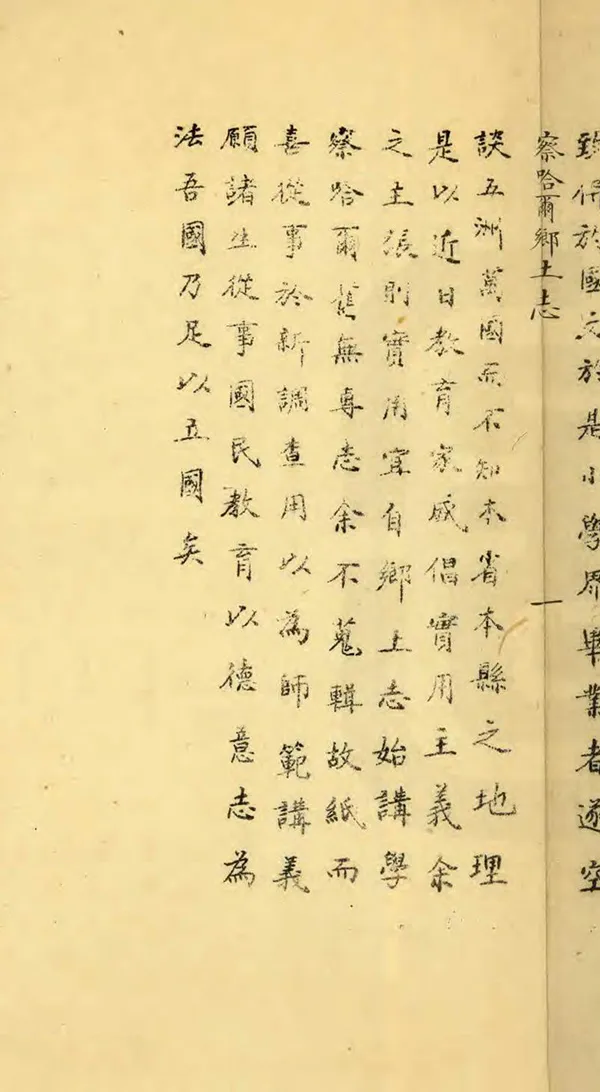 致於國文於是小學界畢業者遂空
察哈爾鄉土志 一
談五洲萬國而不知本省本縣之地理
是以近日教育家咸倡實用主義余
之主張則實用宜自鄉土志始講學
察哈爾舊無專志余不蒐輯故紙而
喜從事於新調查用以為師範講義
願諸生從事國民教育以德意志為
法吾國乃足以立國矣